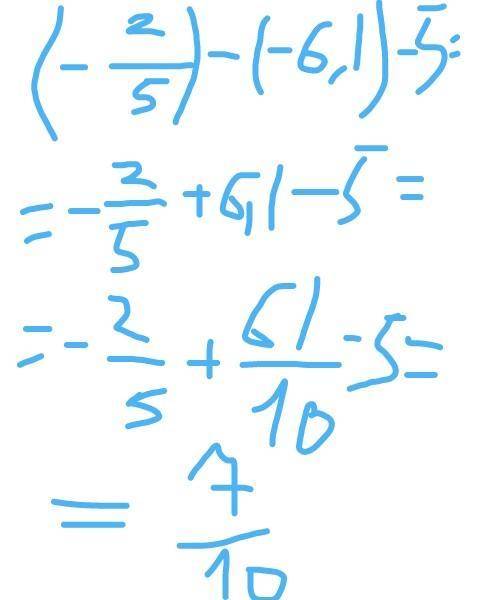 (- 2/5) - (-6,1) - 5 =
= - 2/5 + 6,1 - 5 =
= - 2/5 + 61/10 - 5 =
= 7/10